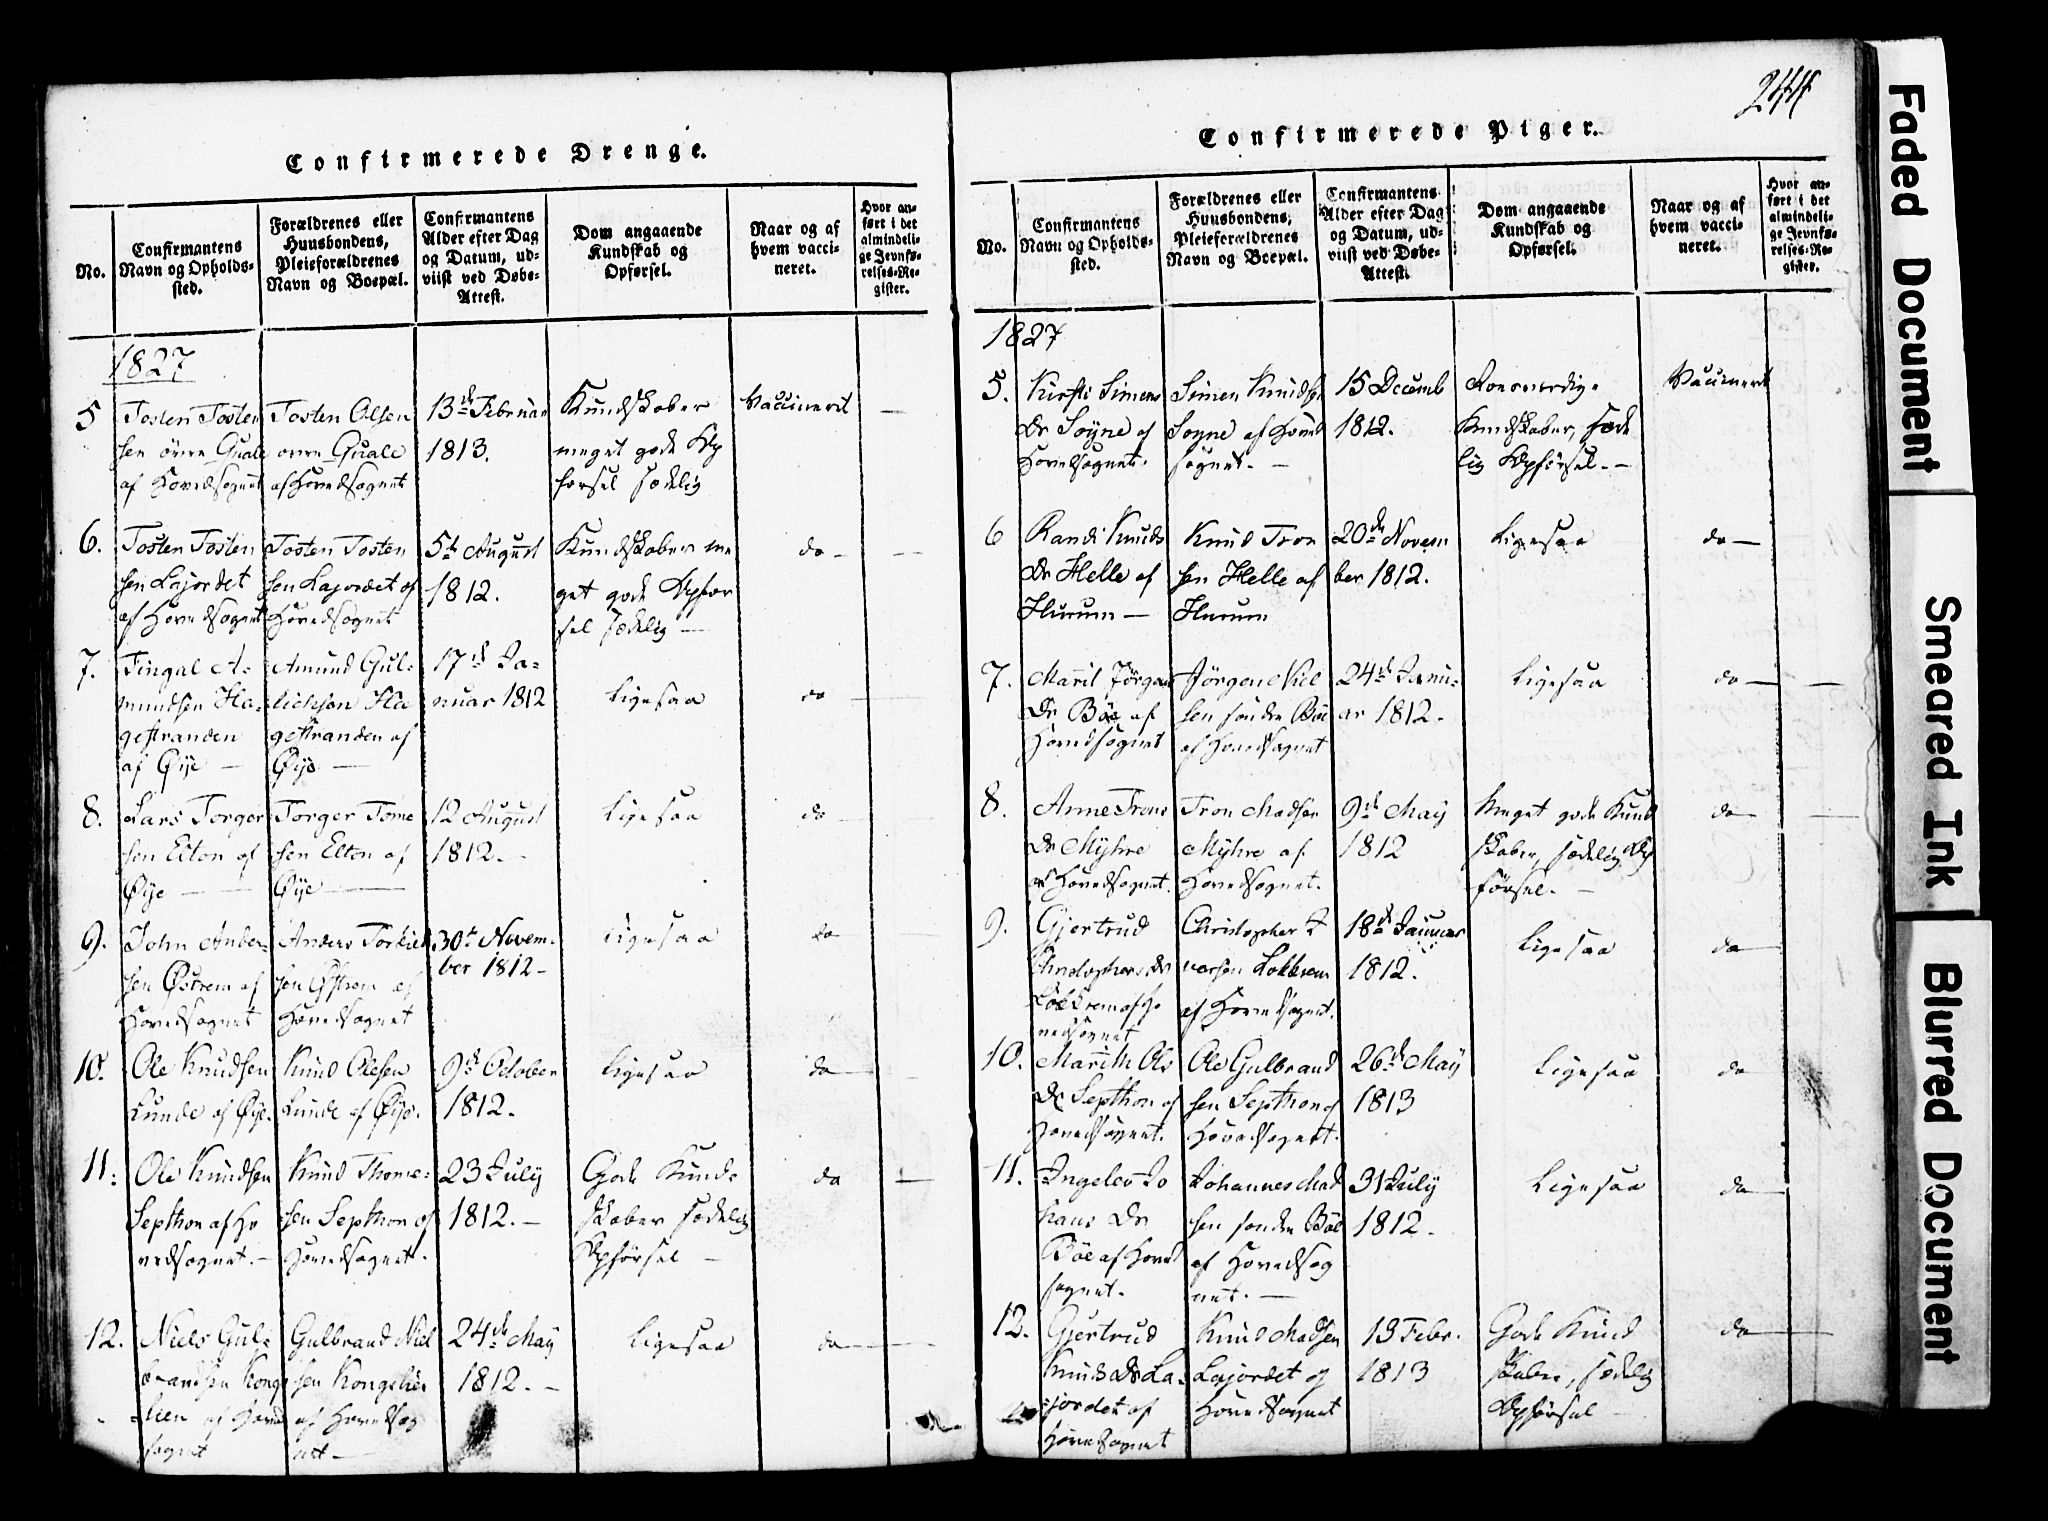 244
Confirmerede Drenge.
No.
Confirmantens
Navn og Opholds-
sted.
Forældrenes eller
Huusbondens,
Pleieforældrenes
Navn og Boepæl.
Confirmantens
Alder efter Dag
og Datum, ud-
viist ved Døbe-
Attest.
Dom angaaende
Kundskab og
Opførsel.
Naar og af
hvem vacci-
neret.
Hvor an-
ført i det
almindeli-
ge Jevnfø-
relses-Re-
gister.
1827
5
Tosten Tosten
sen övre Quale
af Hovedsognet
Tosten Olsen
ovre Quale
af Hovedsognet
13de Februar
1813.
Kundskaber
meget gode Op
forsel sædelig
Vaccinerit
6.
Tosten Tosten
sen Lajordet
af Hovedsognet
Tosten Tosten
sen Lajordet af
Hovedsognet
5te August
1812.
Kundskaber me
get gode Opfor
sel sædelig
do
7.
Fingal A-
mundsen Ha-
gestranden
af Øije
Amund Gul-
lichsen Ha
gestranden af
Øije
17de Ja-
nuar 1812
Ligesaa
do
8.
Lars Torger
sen Elton af
Øije
Torger Tome
sen Elton af
Øije
12 August
1812.
Ligesaa
do
9.
John Ander-
sen Østrem af
Hovedsognet
Anders Torkild
sen Østrem af
Hovedsognet
30te Novem-
ber 1812
Ligesaa
do
10.
Ole Knudsen
Lunde af Øije.
Knud Olesen
Lunde af Øije.
9de October
1812.
Ligesaa
do
11.
Ole Knudsen
Septhon af Ho
vedsognet.
Knud Thome-
sen Septhon af
Hovedsognet.
23 July
1812.
Gode Kund-
skaber sædelig
Opförsel
do
12.
Niels Gul-
brandsen Konge
lien af Hoved
sognet
Gulbrand Niel
sen Kongelien
af Hovedsog
net
24de May
1812.
Ligesaa
do
Confirmerede Piger.
No.
Confirmantens
Navn og Opholds-
sted.
Forældrenes eller
Huusbondens,
Pleieforældrenes
Navn og Boepæl.
Confirmantens
Alder efter Dag
og Datum, ud-
viist ved Døbe-
Attest.
Dom angaaende
Kundskab og
Opførsel.
Naar og af
hvem vacci-
neret.
Hvor an-
ført i det
almindeli-
ge Jevnfø-
relses-Re-
gister.
1827
5.
Kirsti Simens
Dr Soyne af
Hovedsognet.
Simen Knudsen
Soyne af Hoved
sognet.
15 Decemb
1812.
Roesværdige
Kundskaber, sæde
lig Opförsel.
Vaccinert
6
Randi Knuds
Dr Helle af
Hurum
Knud Tron
sen Helle af
Hurum
20de Novem
ber 1812.
Ligesaa
do
7.
Marit Jörgens
Dr Böe af
Hovedsognet
Jörgen Niel
sen sondre Böe
af Hovedsognet
24de Janu-
ar 1812.
Ligesaa
do
8.
Anne Trons
Dr Myhre
af Hovedsognet.
Tron Madsen
Myhre af
Hovedsognet.
9de May
1812
Meget gode Kund
skaber, sædelig Op
försel.
do
9.
Gjertrud
Christophers Dr
Lokkrem af Ho
vedsognet
Christopher I
varsen Lokkrem
af Hovedsognet.
18de Januar
1812.
Ligesaa
do
10.
Marith Ols
Dr Septhon af
Hovedsognet.
Ole Gulbrand
sen Septhon af
Hovedsognet.
26de May
1813
Ligesaa
do
11.
Ingelev Jo
hans Dr
Böe af Hoved
sognet.
Johannes Mad
sen sondre Böe
af Hovedsog
net.
31 July
1812.
Ligesaa
do
12.
Gjertrud
Knuds Dr La-
jordet af
Hovedsognet
Knud Madsen
Lajordet af
Hovedsognet
13 Febr.
1813
Gode Kund
skaber, sædelig
Opförsel
do
Faded Document
Smeared Ink
Blurred Document